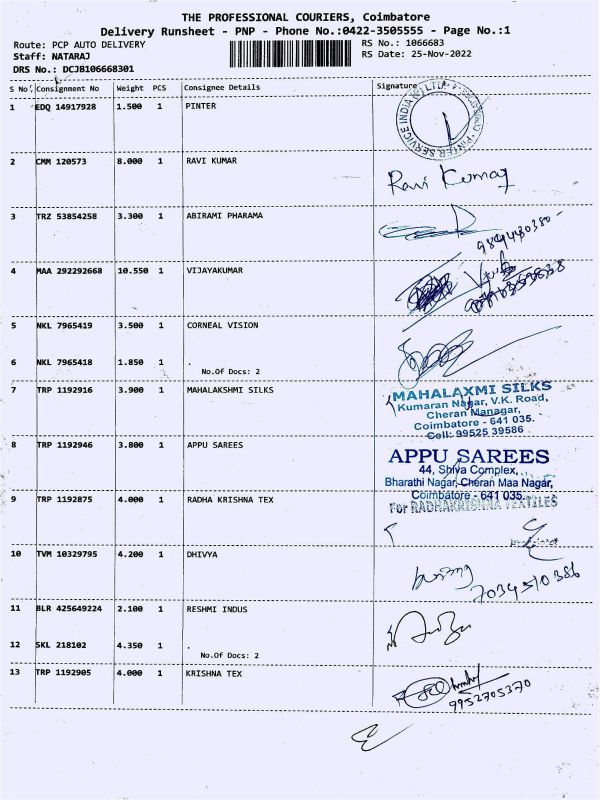 THE PROFESSIONAL COURIERS, Coimbatore
Delivery Runsheet - PNP - Phone No.:0422-3505555 - Page No.:1
Route: PCP AUTO DELIVERY RS No.: 1066683
Staff: NATARAJ RS Date: 25-Nov-2022
DRS No.: DCJB106668301
S No Consignment No Weight PCS Consignee Details Signature
1 EDQ 14917928 1.500 1 PINTER
2 CMM 120573 8.000 1 RAVI KUMAR Ravi Kumar
3 TRZ 53854258 3.300 1 ABIRAMI PHARAMA
4 MAA 292292668 10.550 1 VIJAYAKUMAR
5 NKL 7965419 3.500 1 CORNEAL VISION
6 NKL 7965418 1.850 1 .
No.Of Docs: 2
7 TRP 1192916 3.900 1 MAHALAKSHMI SILKS MAHALAXMI SILKS
Kumaran Nagar, V.K. Road,
Cheran Managar,
Coimbatore - 641 035.
Cell: 99525 39586
8 TRP 1192946 3.800 1 APPU SAREES APPU SAREES
44, Shiva Complex,
Bharathi Nagar, Cheran Maa Nagar,
Coimbatore - 641 035.
9 TRP 1192875 4.000 1 RADHA KRISHNA TEX For RADHAKRISHNA TEXTILES
10 TVM 10329795 4.200 1 DHIVYA
7034510386
11 BLR 425649224 2.100 1 RESHMI INDUS
12 SKL 218102 4.350 1 .
No.Of Docs: 2
13 TRP 1192905 4.000 1 KRISHNA TEX
9952705370